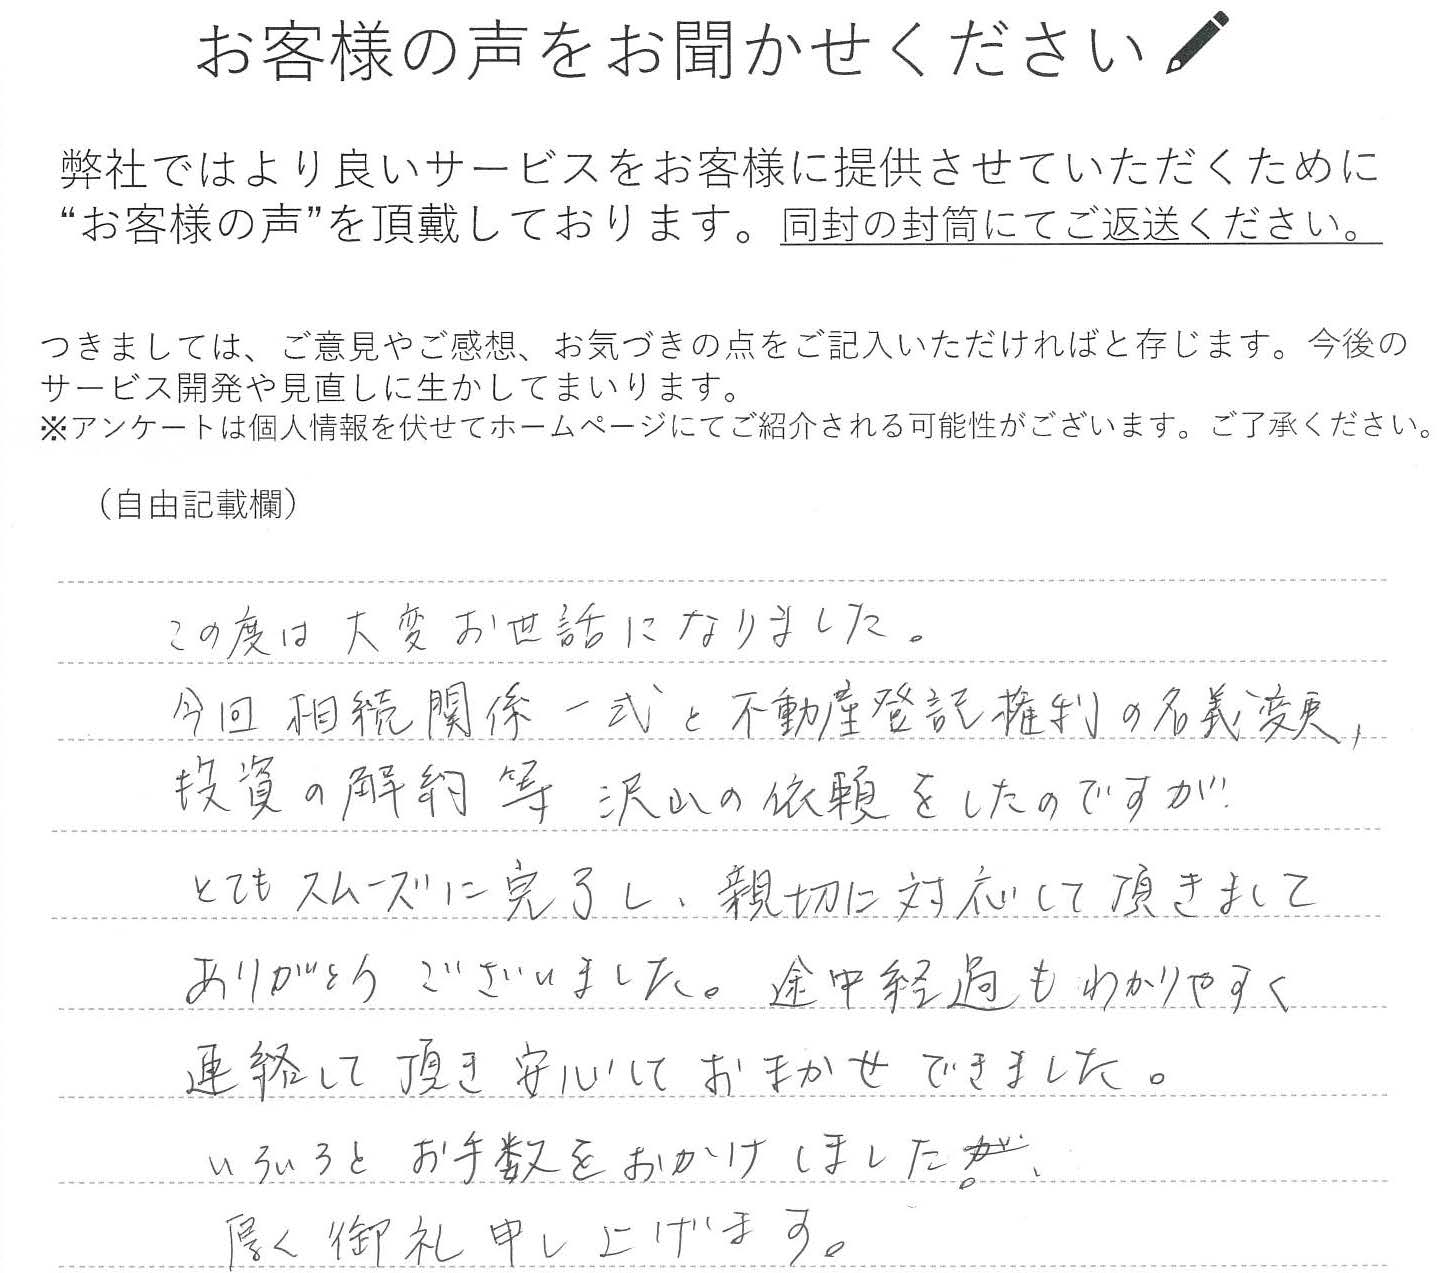 お客様の声をお聞かせください
弊社ではより良いサービスをお客様に提供させていただくために
“お客様の声”を頂戴しております。同封の封筒にてご返送ください。
つきましては、ご意見やご感想、お気づきの点をご記入いただければと存じます。今後の
サービス開発や見直しに生かしてまいります。
※アンケートは個人情報を伏せてホームページにてご紹介される可能性がございます。ご了承ください。
（自由記載欄）
この度は大変お世話になりました。
今回相続関係一式と不動産登記権利の名義変更,
投資の解約等 沢山の依頼をしたのですが
とてもスムーズに完了し、親切に対応して頂きまして
ありがとうございました。途中経過もわかりやすく
連絡して頂き安心しておまかせできました。
いろいろとお手数をおかけしました。
厚く御礼申し上げます。